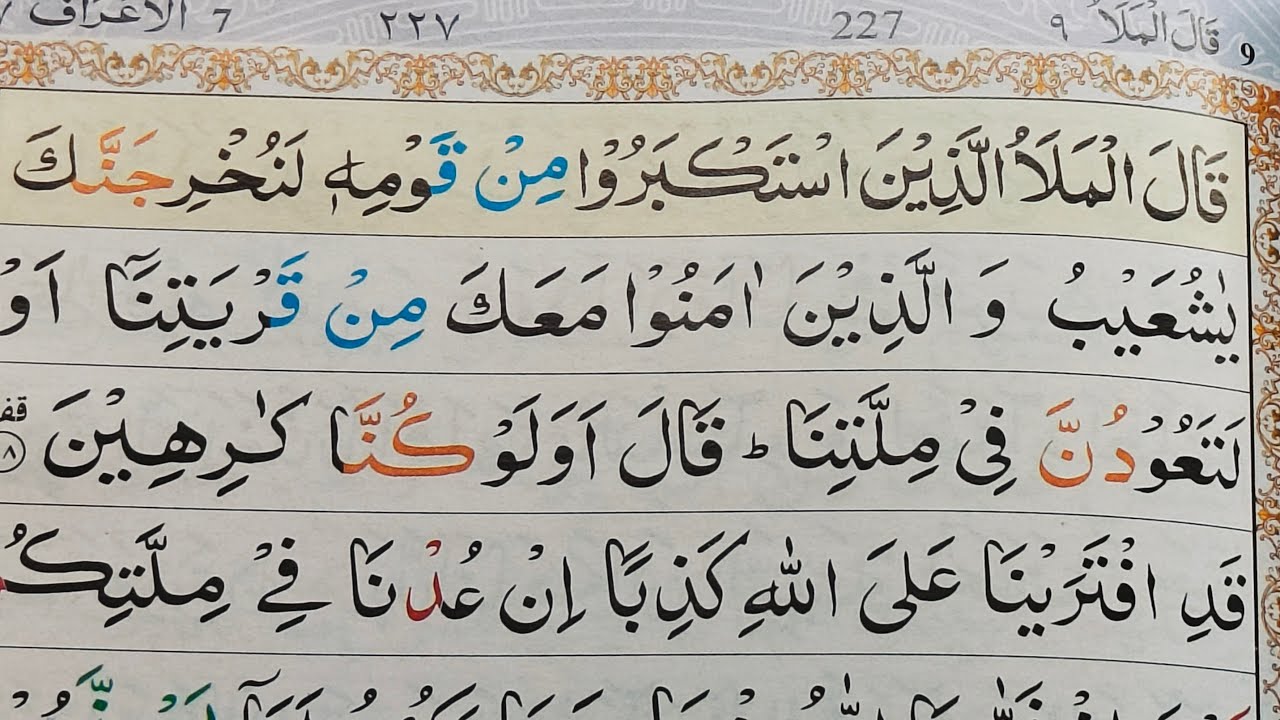 9 قَالَ الْمَلَاُ ٩ 227 ٢٢٧ 7 الاعراف
قَالَ الْمَلَاُ الَّذِيْنَ اسْتَكْبَرُوْا مِنْ قَوْمِهٖ لَنُخْرِجَنَّكَ
يٰشُعَيْبُ وَ الَّذِيْنَ اٰمَنُوْا مَعَكَ مِنْ قَرْيَتِنَآ اَوْ
لَتَعُوْدُنَّ فِيْ مِلَّتِنَا ؕ قَالَ اَوَلَوْ كُنَّا كٰرِهِيْنَ قف
قَدِ افْتَرَيْنَا عَلَى اللّٰهِ كَذِبًا اِنْ عُدْنَا فِيْ مِلَّتِكُ